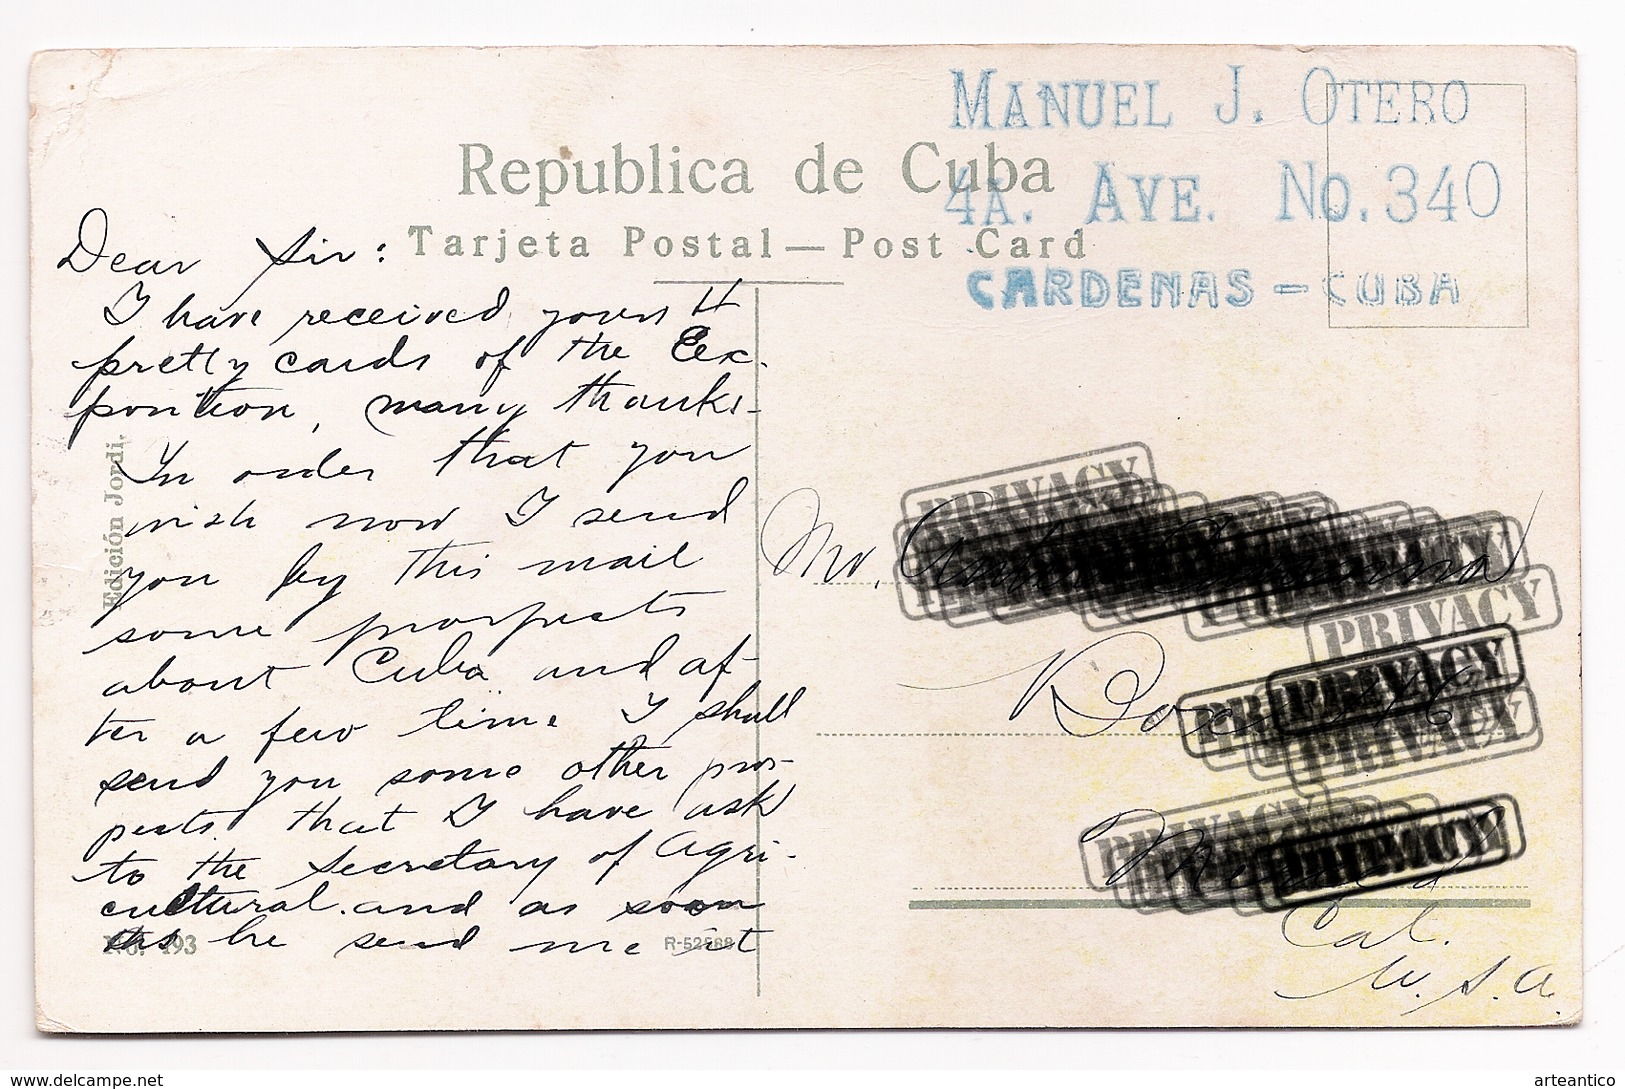 MANUEL J. OTERO
4A. AVE. No. 340
CARDENAS - CUBA
Republica de Cuba
Tarjeta Postal — Post Card
Dear Sir:
I have received yours 4
pretty cards of the Ex-
position, many thanks-
In order that you
wish now I send
you by this mail
some prospects
about Cuba and af-
ter a few time I shall
send you some other pros-
pects that I have ask
to the Secretary of Agri-
cultural and as soon
as he send me it
Edición Jordi.
No. 493
R-52588
Mr.
Box
Cal.
U.S.A.
PRIVACY
PRIVACY
PRIVACY
PRIVACY
PRIVACY
PRIVACY
www.delcampe.net
arteantico